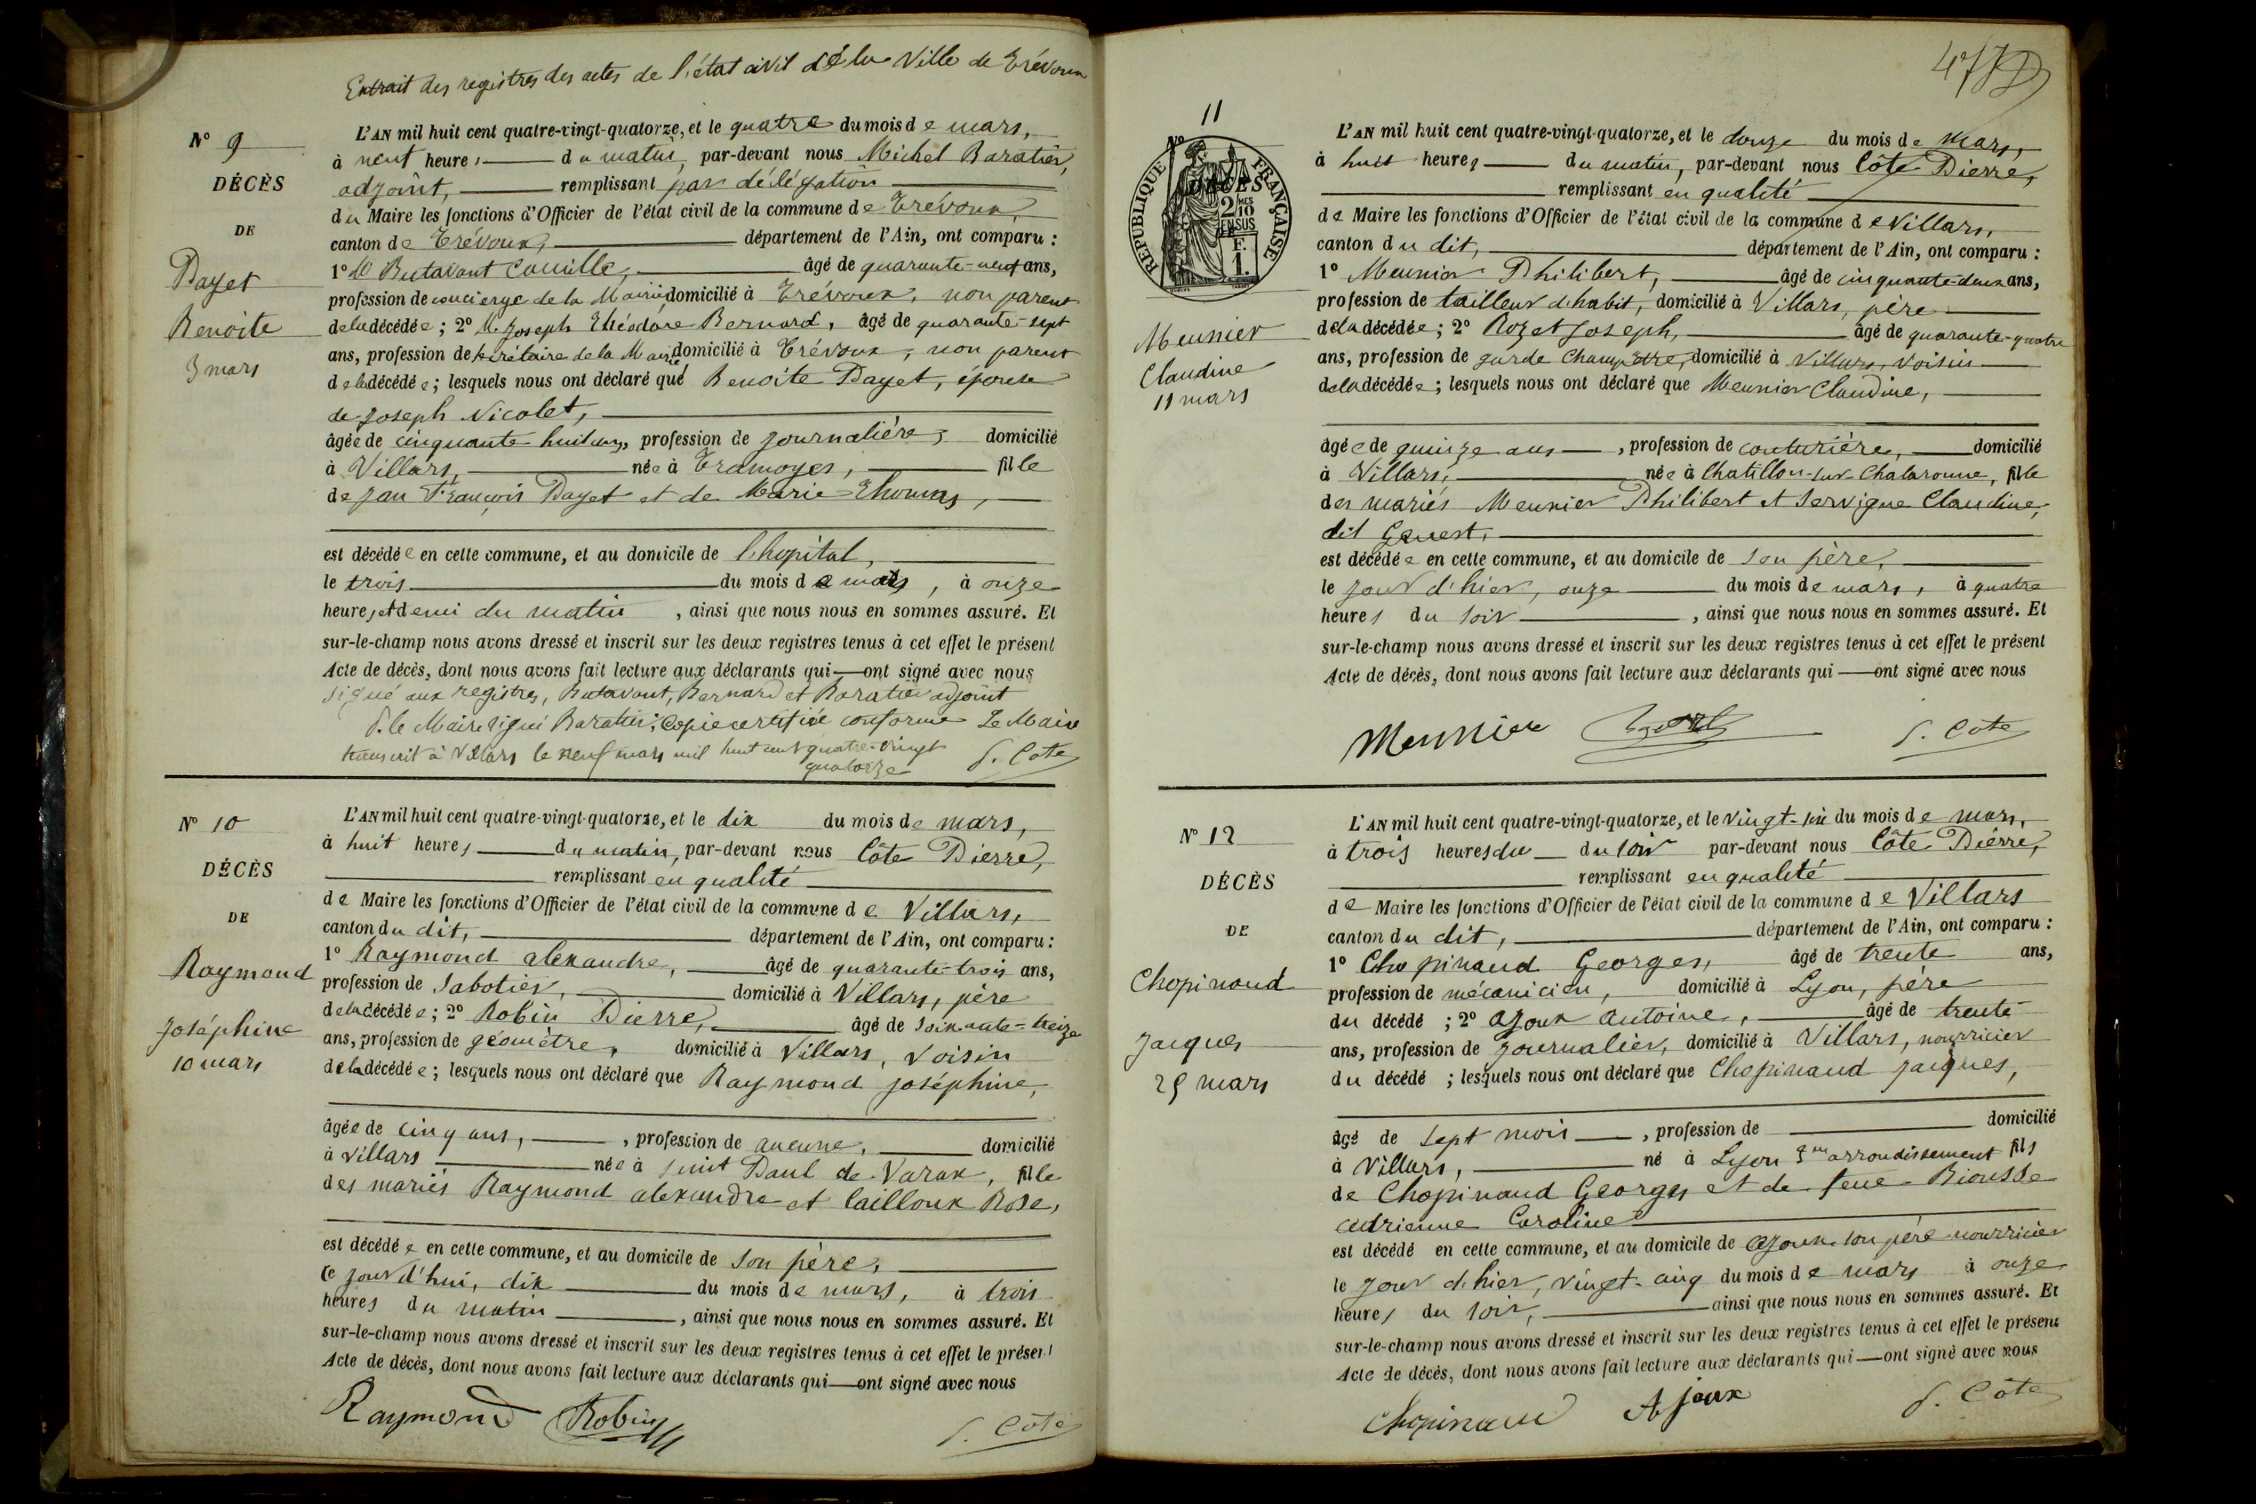 Extrait des registres des actes de l'état civil de la Ville de Trévoux
N° 9
DÉCÈS
DE
Dayet
Benoite
3 mars
L'AN mil huit cent quatre-vingt-quatorze, et le quatre du mois de mars,
à neuf heures du matin, par-devant nous Michel Baratier,
adjoint, remplissant par délégation
du Maire les fonctions d'Officier de l'état civil de la commune de Trévoux,
canton de Trévoux, département de l'Ain, ont comparu :
1° M Butavant Camille, âgé de quarante-neuf ans,
profession de concierge de la Mairie domicilié à Trévoux, non parent
de la décédée ; 2° M. Joseph Théodore Bernard, âgé de quarante-sept
ans, profession de secrétaire de la Mairie domicilié à Trévoux, non parent
de la décédée ; lesquels nous ont déclaré que Benoite Dayet, épouse
de Joseph Nicolet,
âgée de cinquante huit ans, profession de journalière, domicilié
à Villars, née à Tramoyes, fille
de Jean François Dayet et de Marie Thomas,
est décédée en cette commune, et au domicile de l'hopital,
le trois du mois de mars, à onze
heures et demi du matin, ainsi que nous nous en sommes assuré. Et
sur-le-champ nous avons dressé et inscrit sur les deux registres tenus à cet effet le présent
Acte de décès, dont nous avons fait lecture aux déclarants qui ont signé avec nous
signé aux registres, Butavant, Bernard et Baratier adjoint
P. le Maire signé Baratier : Copie certifiée conforme Le Maire
transcrit à Villars le neuf mars mil huit cent quatre-vingt
quatorze P. Cote
N° 10
DÉCÈS
DE
Raymond
Joséphine
10 mars
L'AN mil huit cent quatre-vingt-quatorze, et le dix du mois de mars,
à huit heures du matin, par-devant nous Côte Pierre,
remplissant en qualité
de Maire les fonctions d'Officier de l'état civil de la commune de Villars,
canton du dit, département de l'Ain, ont comparu :
1° Raymond alexandre, âgé de quarante-trois ans,
profession de Sabotier, domicilié à Villars, père
de la décédée ; 2° Robin Pierre, âgé de soixante-treize
ans, profession de géomètre, domicilié à Villars, voisin
de la décédée ; lesquels nous ont déclaré que Raymond joséphine,
âgée de cinq ans, , profession de aucune, domicilié
à Villars née à saint Paul de Varax, fille
des mariés Raymond alexandre et Cailloux Rose,
est décédée en cette commune, et au domicile de son père,
ce jour d'hui, dix du mois de mars, à trois
heures du matin , ainsi que nous nous en sommes assuré. Et
sur-le-champ nous avons dressé et inscrit sur les deux registres tenus à cet effet le présent
Acte de décès, dont nous avons fait lecture aux déclarants qui ont signé avec nous
Raymond Robin P. Côte
11
N°
RÉPUBLIQUE FRANÇAISE
DÉCÈS
2 MES
10
EN SUS
F.
1.
Meunier
Claudine
11 mars
L'AN mil huit cent quatre-vingt-quatorze, et le douze du mois de mars,
à huit heures du matin, par-devant nous Côte Pierre,
remplissant en qualité
de Maire les fonctions d'Officier de l'état civil de la commune de Villars,
canton du dit, département de l'Ain, ont comparu :
1° Meunier Philibert, âgé de cinquante-deux ans,
profession de tailleur d'habit, domicilié à Villars, père
de la décédée ; 2° Rozet Joseph, âgé de quarante-quatre
ans, profession de garde Champêtre, domicilié à Villars, voisin
de la décédée ; lesquels nous ont déclaré que Meunier Claudine,
âgée de quinze ans , profession de couturière, domicilié
à Villars, née à Chatillon-sur-Chalaronne, fille
des mariés Meunier Philibert et Servigne Claudine,
dit Genest,
est décédée en cette commune, et au domicile de son père,
le jour d'hier, onze du mois de mars, à quatre
heures du soir , ainsi que nous nous en sommes assuré. Et
sur-le-champ nous avons dressé et inscrit sur les deux registres tenus à cet effet le présent
Acte de décès, dont nous avons fait lecture aux déclarants qui ont signé avec nous
Meunier P. Cote
N° 12
DÉCÈS
DE
Chopinaud
Jacques
25 mars
L'AN mil huit cent quatre-vingt-quatorze, et le vingt-six du mois de mars,
à trois heures du du soir par-devant nous Côte Pierre,
remplissant en qualité
de Maire les fonctions d'Officier de l'état civil de la commune de Villars
canton du dit, département de l'Ain, ont comparu :
1° Chopinaud Georges, âgé de trente ans,
profession de mécanicien, domicilié à Lyon, père
du décédé ; 2° ajoux antoine, âgé de trente
ans, profession de journalier, domicilié à Villars, nourricier
du décédé ; lesquels nous ont déclaré que Chopinaud jacques,
âgé de sept mois , profession de domicilié
à Villars, né à Lyon 3me arrondissement fils
de Chopinaud Georges et de feue Biousse
adrienne Caroline
est décédé en cette commune, et au domicile de ajoux son père nourricier
le jour d'hier, vingt-cinq du mois de mars à onze
heures du soir, ainsi que nous nous en sommes assuré. Et
sur-le-champ nous avons dressé et inscrit sur les deux registres tenus à cet effet le présent
Acte de décès, dont nous avons fait lecture aux déclarants qui ont signé avec nous
Chopinaud Ajoux P. Côte